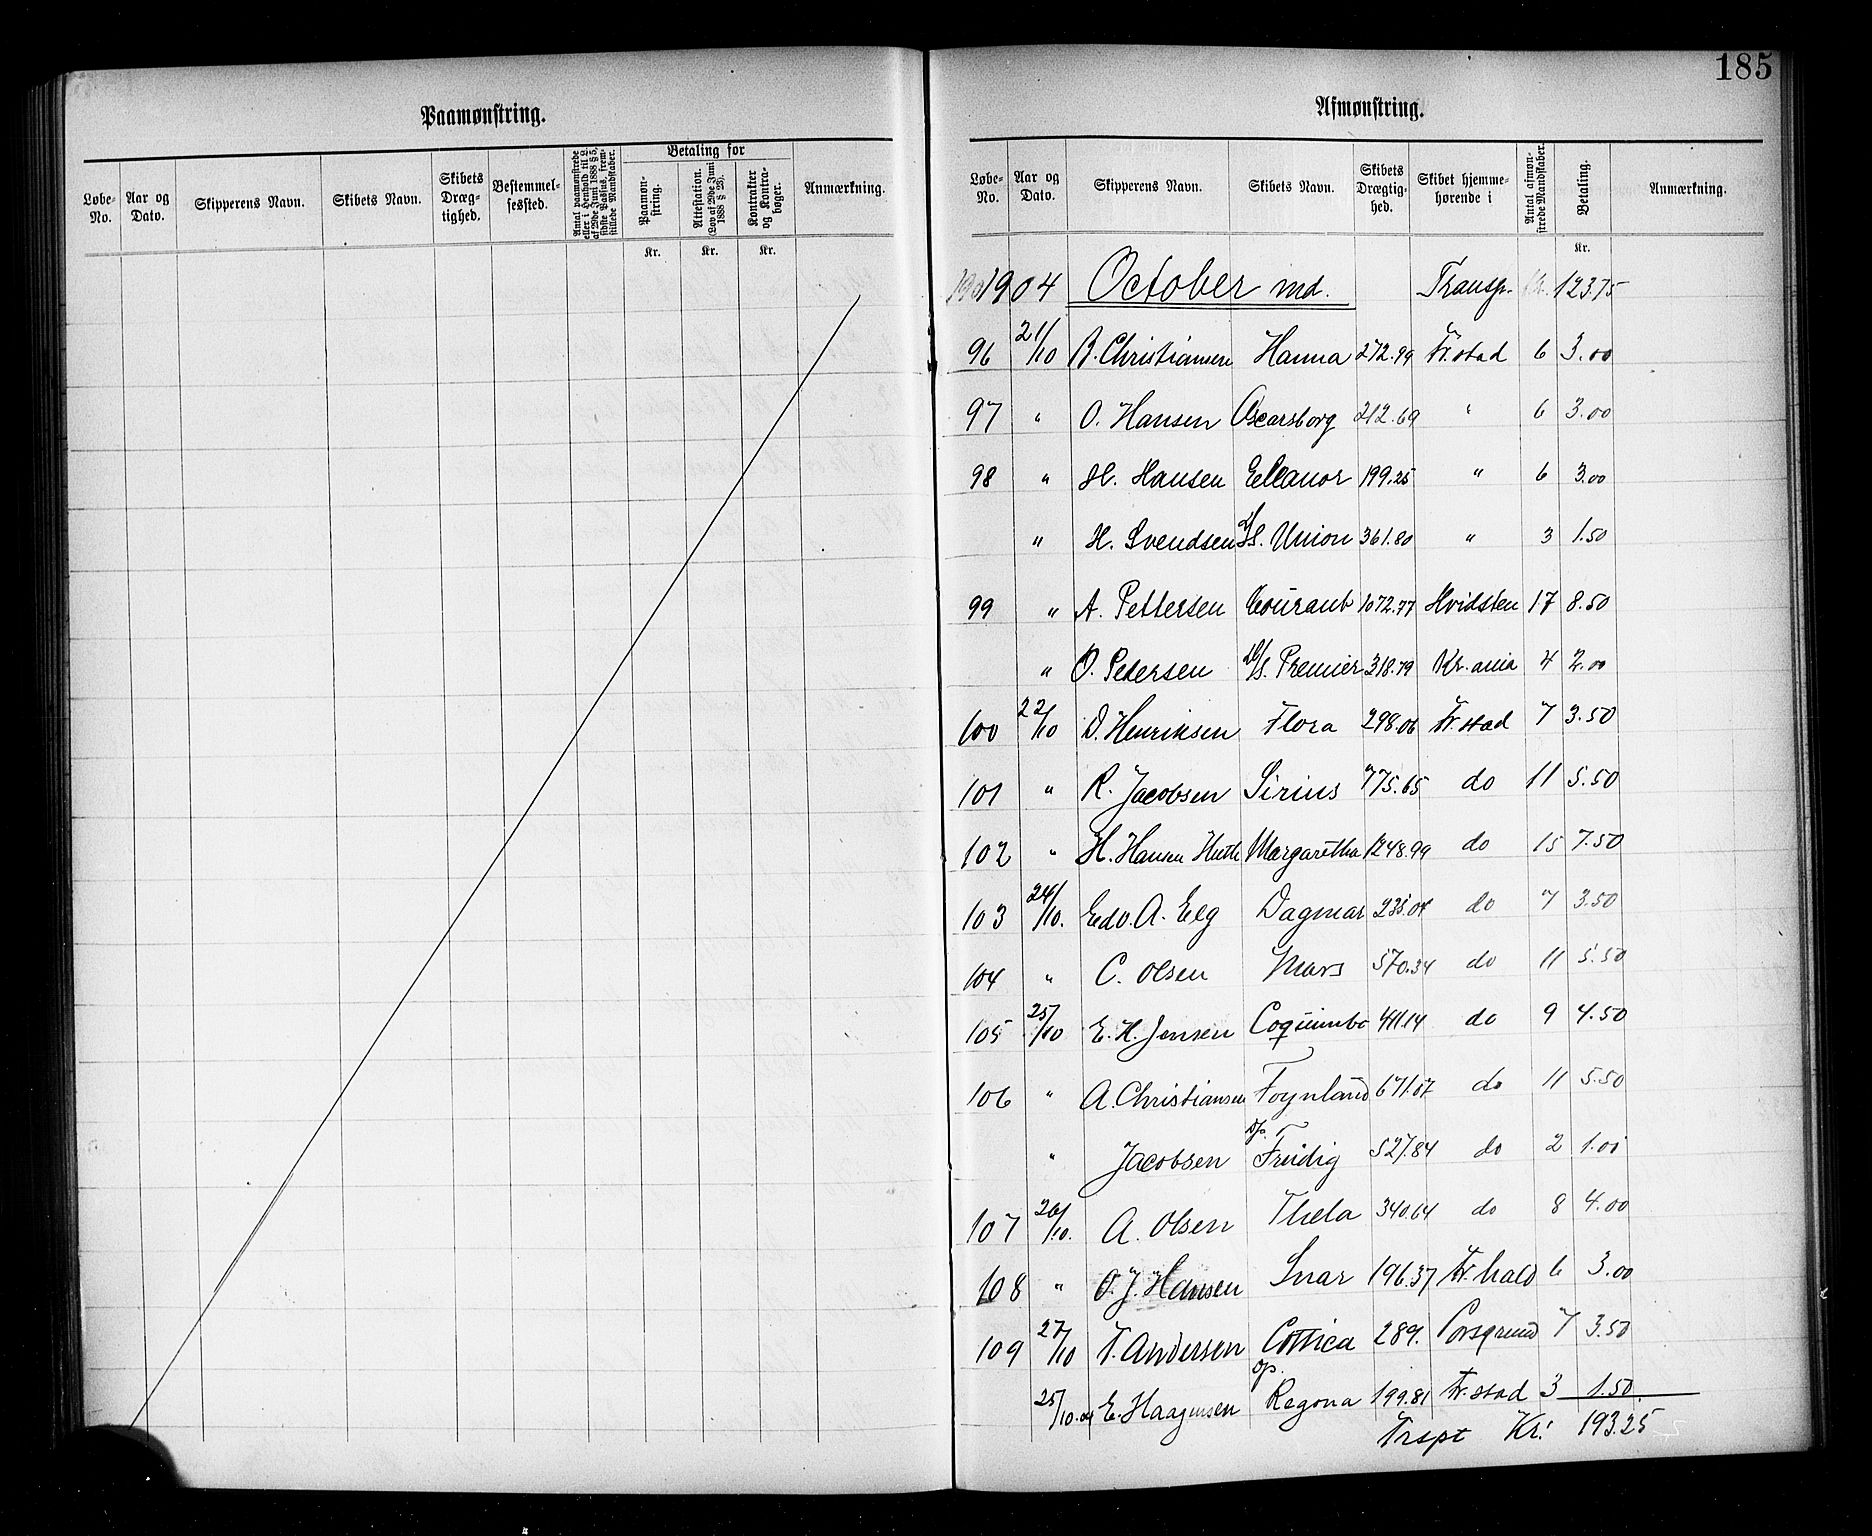 185
Paamønstring.
Løbe-No. Aar og Dato. Skipperens Navn. Skibets Navn. Skibets Dræg-tighed. Bestemmel-sessted. Antal paamønstrede eller i Henhold til L. af 29de Juni 1888 § 5, sidste Passus, frem-stillede Mandskaber. Betaling for Paamøn-string. Attestation. (Lov af 29de Juni 1888 § 23). Kontrakter og Kontra-bøger. Anmærkning.
Kr. Kr. Kr.
Afmønstring.
Løbe-No. Aar og Dato. Skipperens Navn. Skibets Navn. Skibets Drægtig-hed. Skibet hjemme-hørende i Antal afmøn-strede Mandskaber. Betaling. Anmærkning.
Kr.
1904 October md. Transp. Kr. 123.75
96 21/10 B. Christiansen Hanna 272.99 Fr.stad 6 3.00
97 " O. Hansen Oscarsborg 212.69 " 6 3.00
98 " H. Hansen Elleanor 199.25 " 6 3.00
" H. Svendsen D/S. Union 361.80 " 3 1.50
99 " A. Pettersen Courant 1072.77 Hvidsten 17 8.50
" O. Pedersen D/S. Premier 318.79 Kr.ania 4 2.00
100 22/10 D. Henriksen Flora 298.06 Fr.stad 7 3.50
101 " R. Jacobsen Sirius 775.65 do 11 5.50
102 " H. Hansen Huth Margaretha 1248.99 do 15 7.50
103 24/10. Edv. A. Elg Dagmar 235.04 do 7 3.50
104 " C. Olsen Mars 570.34 do 11 5.50
105 25/10 E. H. Jensen Coquimbo 411.14 do 9 4.50
106 " A. Christiansen Foynland 671.07 do 11 5.50
" Jacobsen D/s. Freidig 527.84 do 2 1.00
107 26/10. A. Olsen Thela 340.64 do 8 4.00
108 " O. J. Hansen Snar 196.37 Fr.hald 6 3.00
109 27/10 T. Andersen Cottica 289. Porsgrund 7 3.50
25/10.04 E. Haagensen D/s. Regona 199.81 Fr.stad 3 1.50
Trspt Kr. 193.25